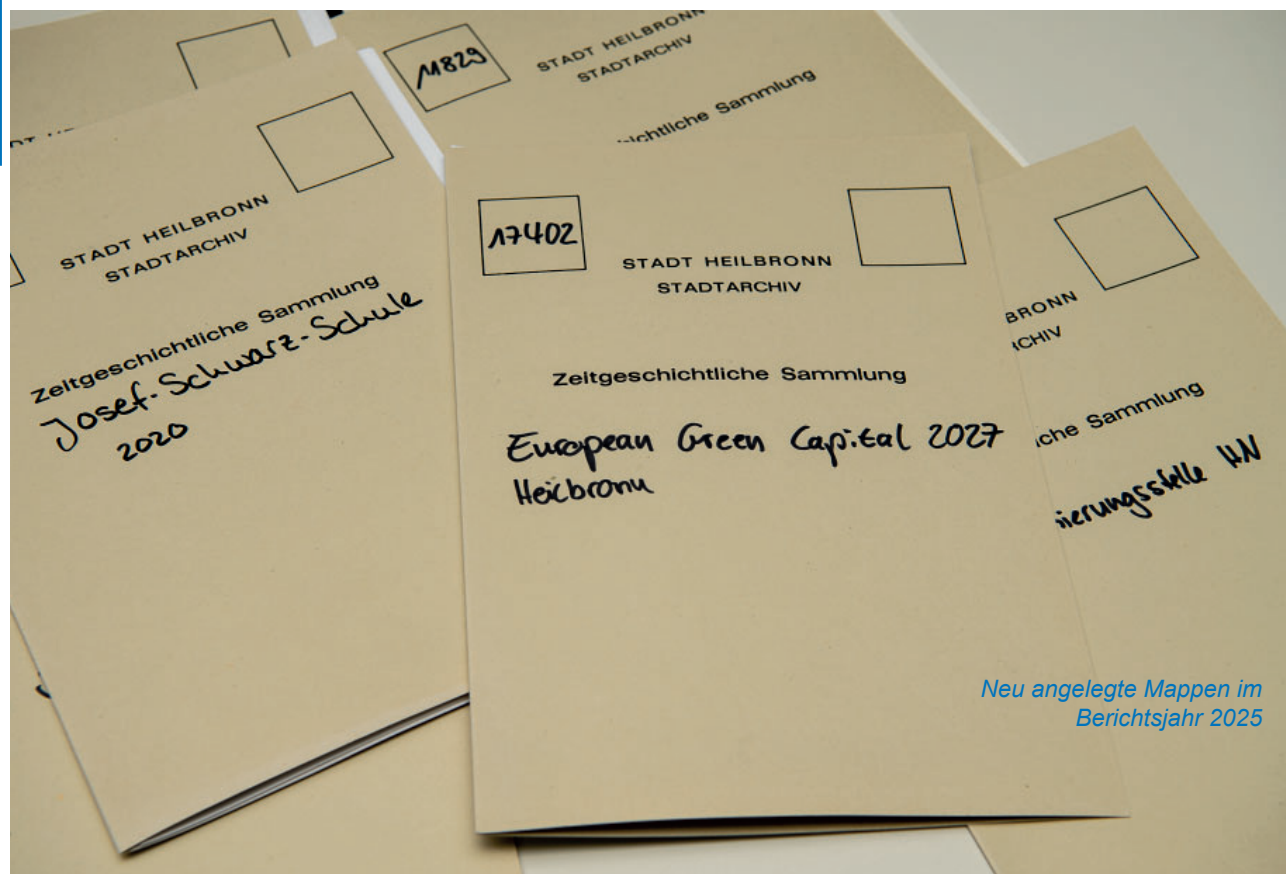 11829
STADT HEILBRONN
STADTARCHIV
ichtliche Sammlung
STADT HEILBRONN
STADTARCHIV
Zeitgeschichtliche Sammlung
Josef-Schwarz-Schule
2020
17402
STADT HEILBRONN
STADTARCHIV
Zeitgeschichtliche Sammlung
European Green Capital 2027
Heilbronn
BRONN
CHIV
iche Sammlung
ierungsstelle HN
Neu angelegte Mappen im
Berichtsjahr 2025